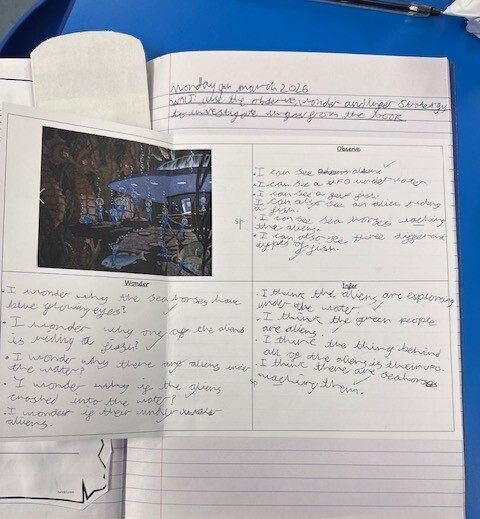 Monday 9th March 2026
WALT use the observe, wonder and infer strategy
to investigate images from the book
Observe
• I can see aliens
• I can see a UFO under water.
• I can see a few fish.
• I can also see an alien riding
a fish.
sp
• I can see sea horses waching
the aliens.
• I can also see three different
types of fish.
Wonder
• I wonder why the sea horses have
blue glowing eyes?
• I wonder why one of the aliens
is riding a fish?
• I wonder why there are aliens under
the water?
• I wonder if the aliens
crashed into the water?
• I wonder if their under water
aliens.
Infer
• I think the aliens are exploring
under the water.
• I think the green people
are aliens.
• I think the thing behind
all of the aliens is their UFO.
• I think there are seahorses
sp
waching them.